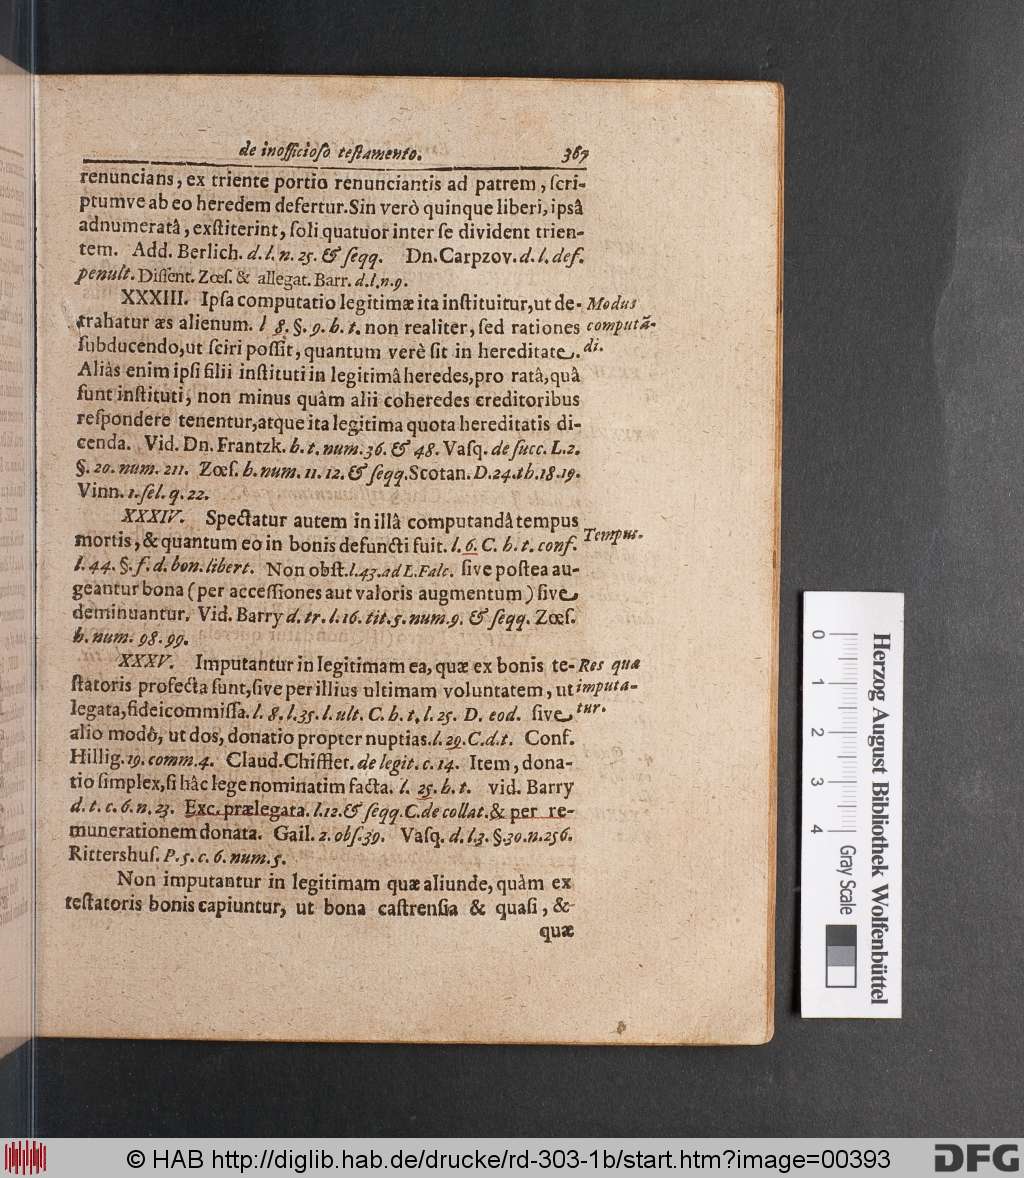 de inofficioſo teſtamento. 367
renuncians, ex triente portio renunciantis ad patrem, ſcri-
ptumve ab eo heredem defertur. Sin verò quinque liberi, ipsâ
adnumeratâ, exſtiterint, ſoli quatuor inter ſe divident trien-
tem. Add. Berlich. d. l. n. 25. & ſeqq. Dn. Carpzov. d. l. def.
penult. Diſſent. Zœſ. & allegat. Barr. d. l. n. 9.
XXXIII. Ipſa computatio legitimæ ita inſtituitur, ut de- Modus
trahatur æs alienum. l 8. §. 9. h. t. non realiter, ſed rationes computā-
ſubducendo, ut ſciri poſſit, quantum verè ſit in hereditate. di.
Aliàs enim ipſi filii inſtituti in legitimâ heredes, pro ratâ, quâ
ſunt inſtituti, non minus quàm alii coheredes creditoribus
reſpondere tenentur, atque ita legitima quota hereditatis di-
cenda. Vid. Dn. Frantzk. h. t. num. 36. & 48. Vaſq. de ſucc. L. 2.
§. 20. num. 211. Zœſ. h. num. 11. 12. & ſeqq. Scotan. D. 24. th. 18. 19.
Vinn. 1. ſel. q. 22.
XXXIV. Spectatur autem in illâ computandâ tempus
mortis, & quantum eo in bonis defuncti fuit. l. 6. C. h. t. conf. Tempus.
l. 44. §. f. d. bon. libert. Non obſt. l. 43. ad L. Falc. ſive poſtea au-
geantur bona (per acceſſiones aut valoris augmentum) ſive
deminuantur. Vid. Barry d. tr. l. 16. tit. 5. num. 9. & ſeqq. Zœſ.
h. num. 98. 99.
XXXV. Imputantur in legitimam ea, quæ ex bonis te- Res quæ
ſtatoris profecta ſunt, ſive per illius ultimam voluntatem, ut imputa-
legata, fideicommiſſa. l. 8. l. 35. l. ult. C. h. t. l. 25. D. eod. ſive tur.
alio modô, ut dos, donatio propter nuptias. l. 29. C. d. t. Conf.
Hillig. 19. comm. 4. Claud. Chifflet. de legit. c. 14. Item, dona-
tio ſimplex, ſi hâc lege nominatim facta. l. 25. h. t. vid. Barry
d. t. c. 6. n. 23. Exc. prælegata. l. 12. & ſeqq. C. de collat. & per re-
munerationem donata. Gail. 2. obſ. 39. Vaſq. d. l. 3. §. 30. n. 256.
Rittershuſ. P. 5. c. 6. num. 5.
Non imputantur in legitimam quæ aliunde, quàm ex
teſtatoris bonis capiuntur, ut bona caſtrenſia & quaſi, &
quæ
0 1 2 3 4 Gray Scale
Herzog August Bibliothek Wolfenbüttel
© HAB http://diglib.hab.de/drucke/rd-303-1b/start.htm?image=00393 DFG